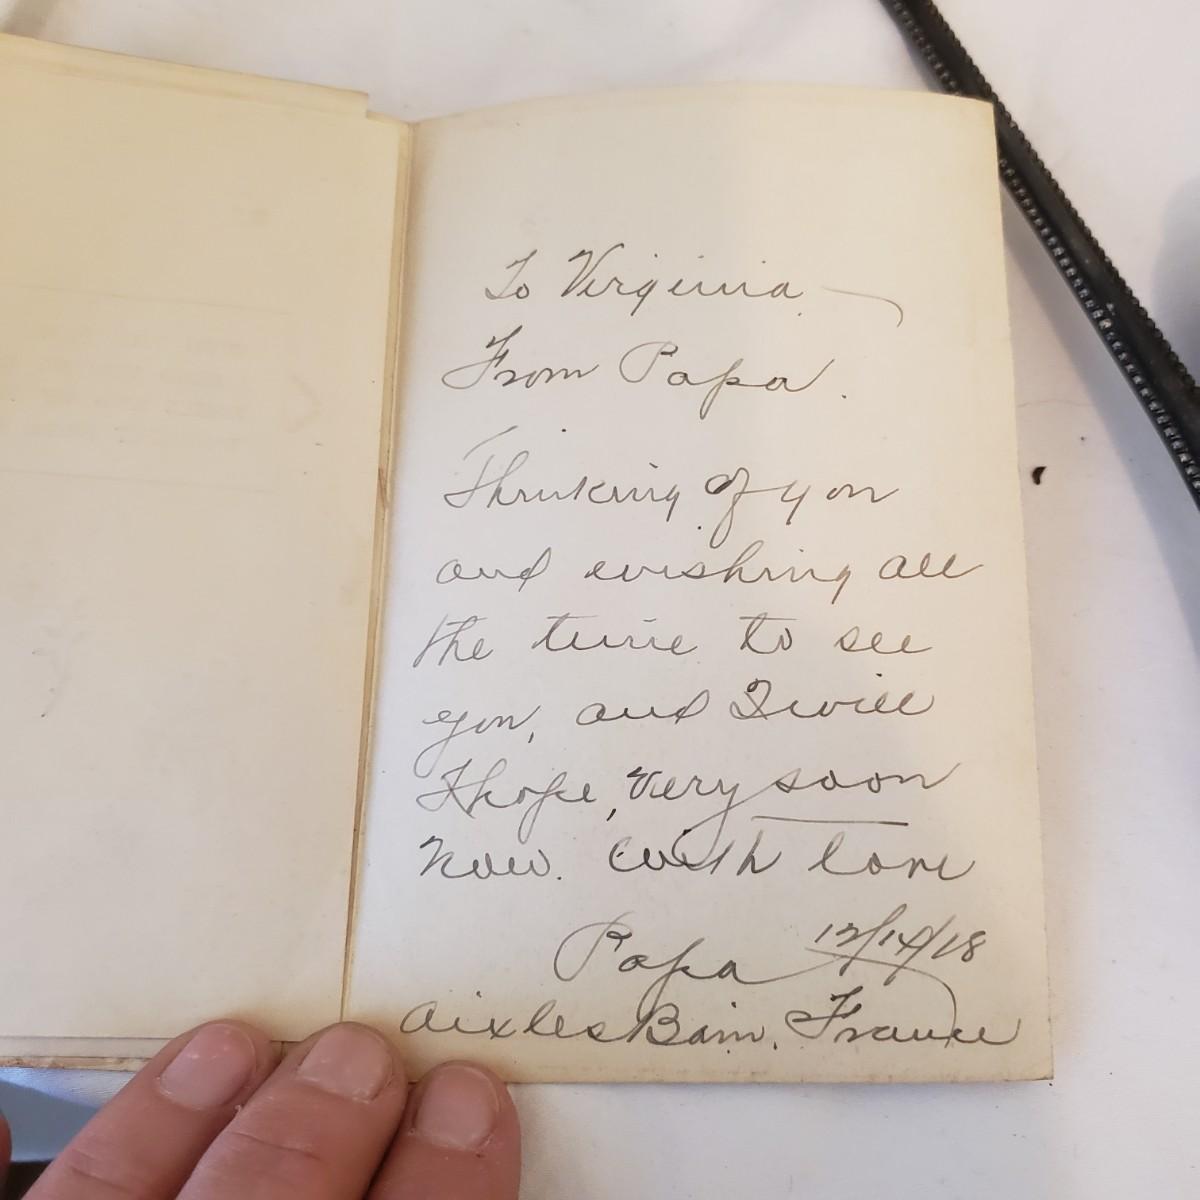 To Virginia
From Papa.
Thinking of you
and wishing all
the time to see
you, and I will
I hope, very soon
now. With love
Papa 12/14/18
Aix les Bain, France